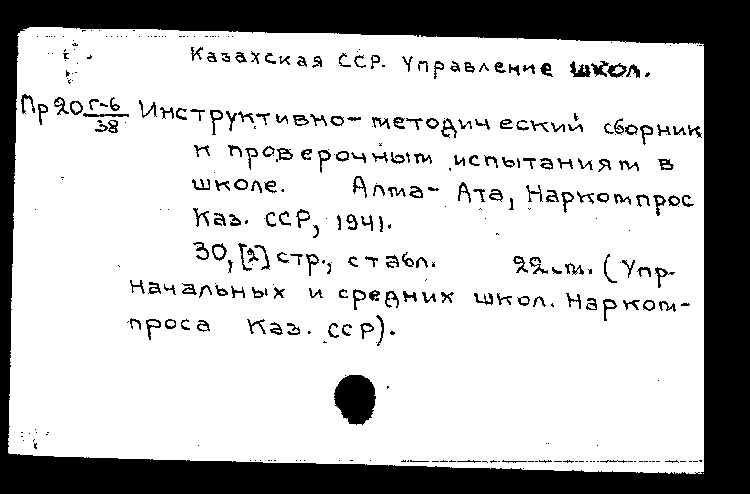 Казахская ССР. Управление школ.
Пр20 Г-6/38 Инструктивно-методический сборник
к проверочным испытаниям в
школе. Алма-Ата, Наркомпрос
Каз. ССР, 1941.
30, [2] стр., с табл. 22 см. (Упр.
начальных и средних школ. Нарком-
проса Каз. ССР).